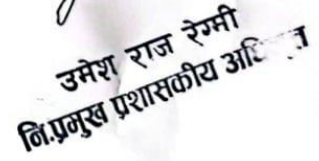 उमेश राज रेग्मी
नि.प्रमुख प्रशासकीय